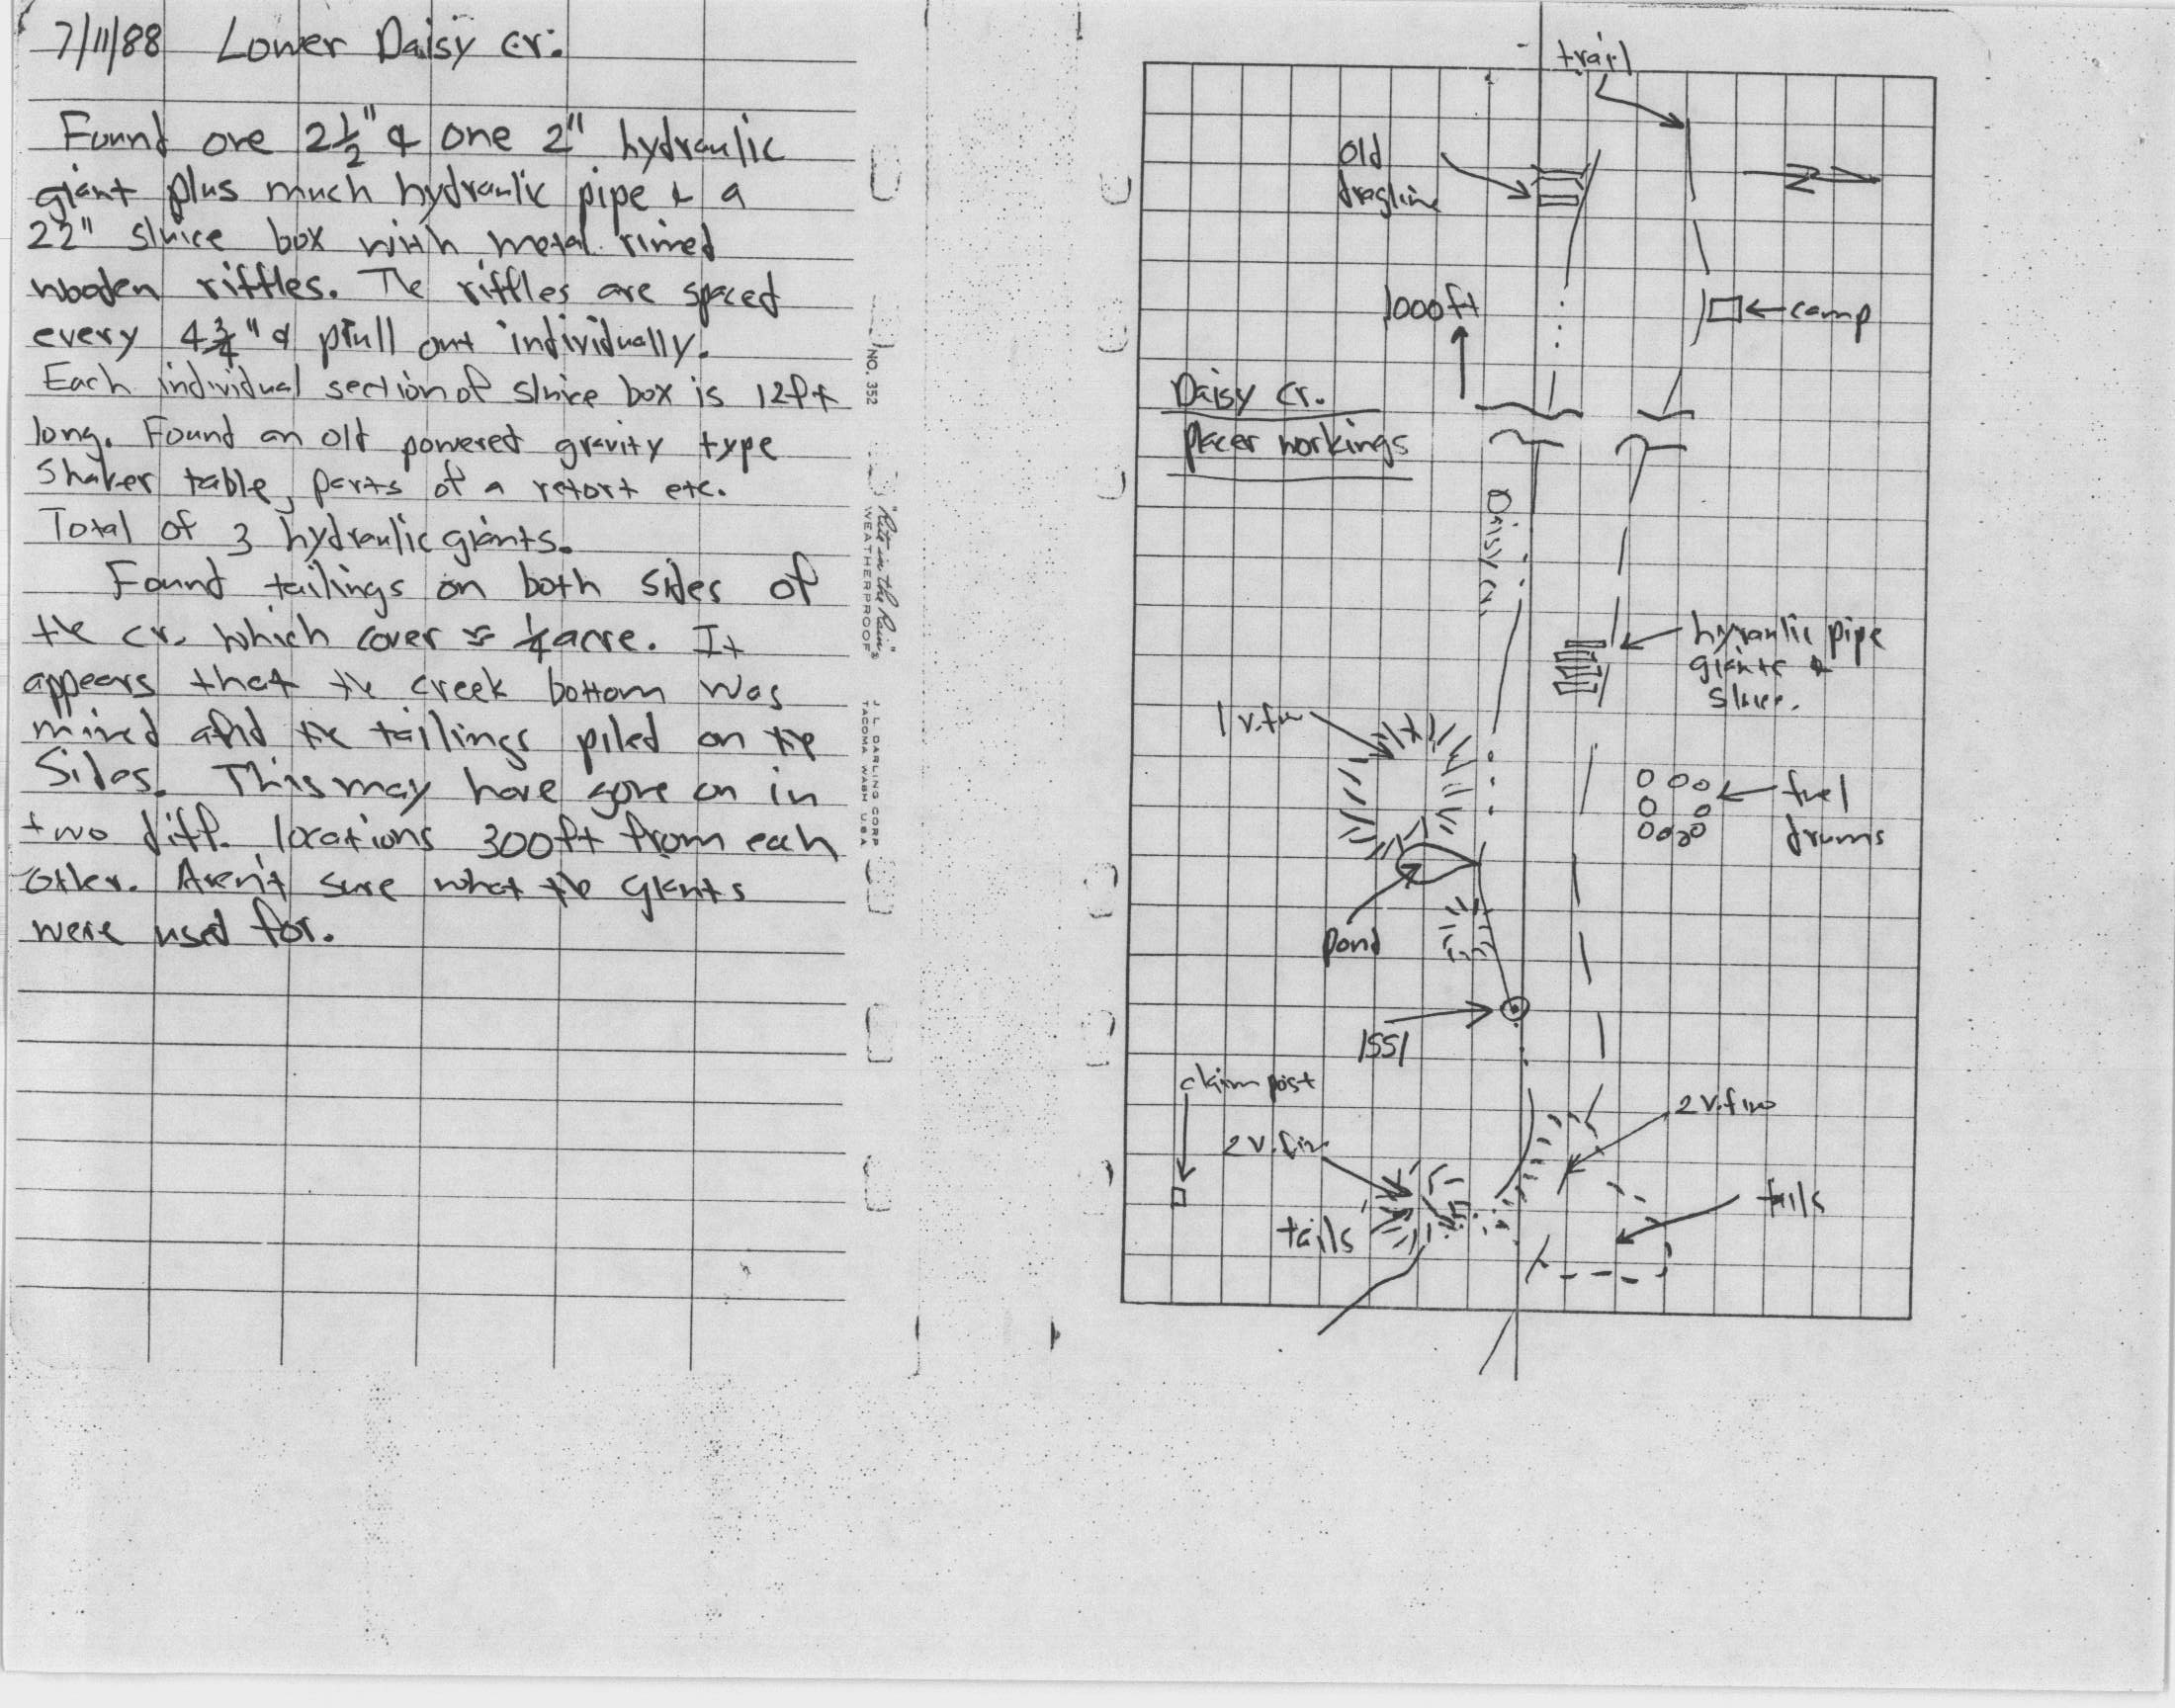 7/11/88 Lower Daisy cr.
Found one 2½" & one 2" hydraulic
giant plus much hydraulic pipe & a
22" sluice box with metal rimed
wooden riffles. The riffles are spaced
every 4¾" & pull out individually.
Each individual section of sluice box is 12ft
long. Found an old powered gravity type
Shaker table, parts of a retort etc.
Total of 3 hydraulic giants.
Found tailings on both sides of
the cr. which cover ≈ ¼ acre. It
appears that the creek bottom was
mined and the tailings piled on the
Sides. This may have gone on in
two diff. locations 300ft from each
other. Aren't sure what the giants
were used for.
NO. 352
"Rite in the Rain"
WEATHERPROOF
J. L. DARLING CORP
TACOMA WASH USA
trail
old
dragline
N
1000ft
camp
Daisy Cr.
placer workings
Daisy Cr.
hyraulic pipe
giants &
sluice.
1 v.fin
fuel
drums
pond
1551
claim post
2 v.fin
2 v.fin
tails
tails